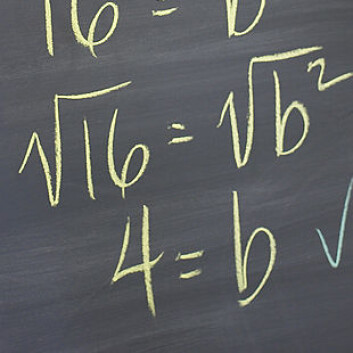 16 = b
√16 = √b²
4 = b ✓